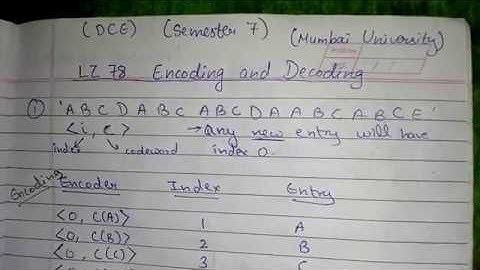 (DCE) (Semester 7) (Mumbai University)
LZ 78 Encoding and Decoding
① 'A B C D A B C A B C D A A B C A B C E'
<i, c> → Any new entry will have
index codeword index 0.
Encoding
Encoder Index Entry
<0, C(A)> 1 A
<0, C(B)> 2 B
<0, C(C)> 3 C